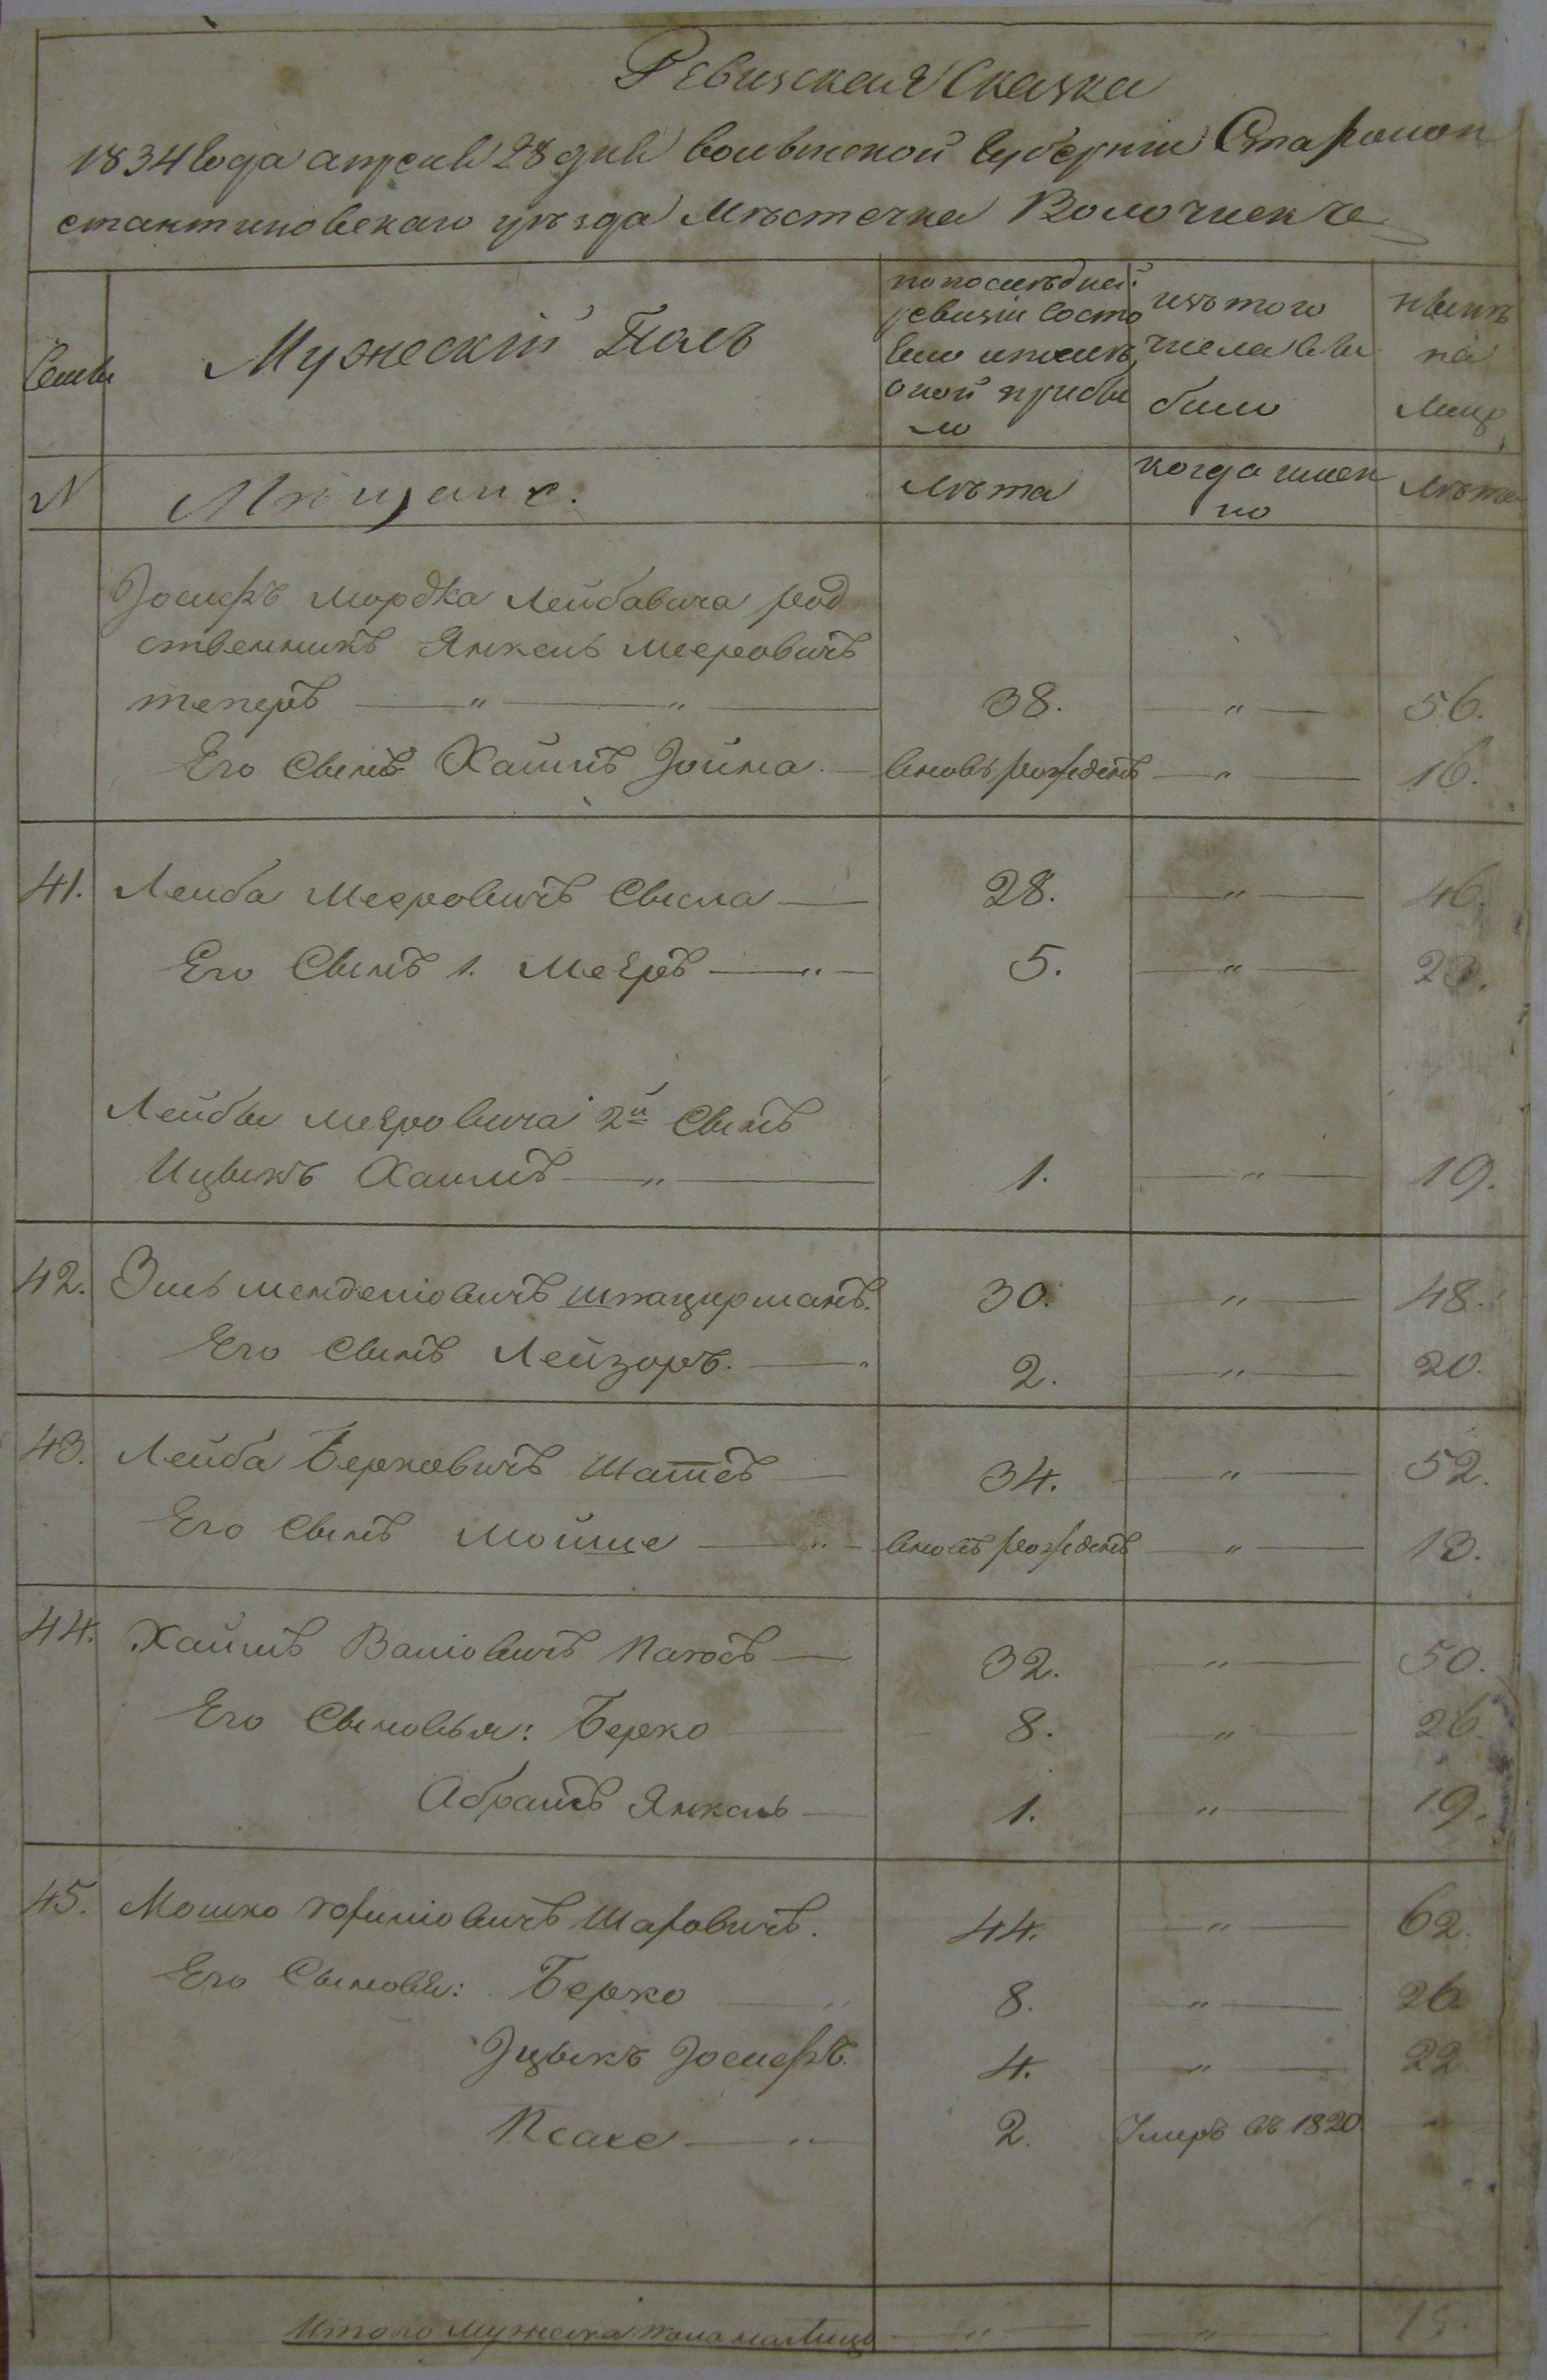 Ревизская Сказка
1834 года апреля 28 дня волынской губернии Старокон
стантиновскаго уѣзда Мѣстечка Волочиска
Семьи
Мужескій Полъ
по последней
ревизіи состо
яло и после
оной прибы
ло
изъ того
числа вы
было
нынѣ
на
лицо
N
Мѣщане.
лѣта
когда имен
но
лѣта
Іосифъ Мордка Лейбовича род
ственникъ Янкель Мееровичъ
теперъ — " — " — 38. — " — 56.
Его Сынъ Хаимъ Іойна — вновь рожденъ — " — 16.
41. Лейба Мееровичъ — 28. — " — 46.
Его Сынъ 1. Мееръ — " — 5. — " — 23.
Лейбы Мееровича 2й Сынъ
Ицыкъ Хаимъ — " — 1. — " — 19.
42. Эль Менделіовичъ шпацирманъ. 30. — " — 48.
Его Сынъ Лейзоръ. — " 2. — " — 20.
43. Лейба Берковичъ — 34. — " — 52.
Его Сынъ Мойше — " — вновь рожденъ — " — 13.
44. Хаимъ — 32. — " — 50.
Его Сыновья: Берко — 8. — " — 26.
Абрамъ Янкель — 1. — " — 19.
45. Мошко Шафовичъ. 44. — " — 62.
Его Сыновья: Берко — " 8. — " — 26
Іцыкъ Іосифъ. 4. — " — 22
2. Умеръ въ 1820. — "
Итого мужеска пола налицо — " — — " — 15.